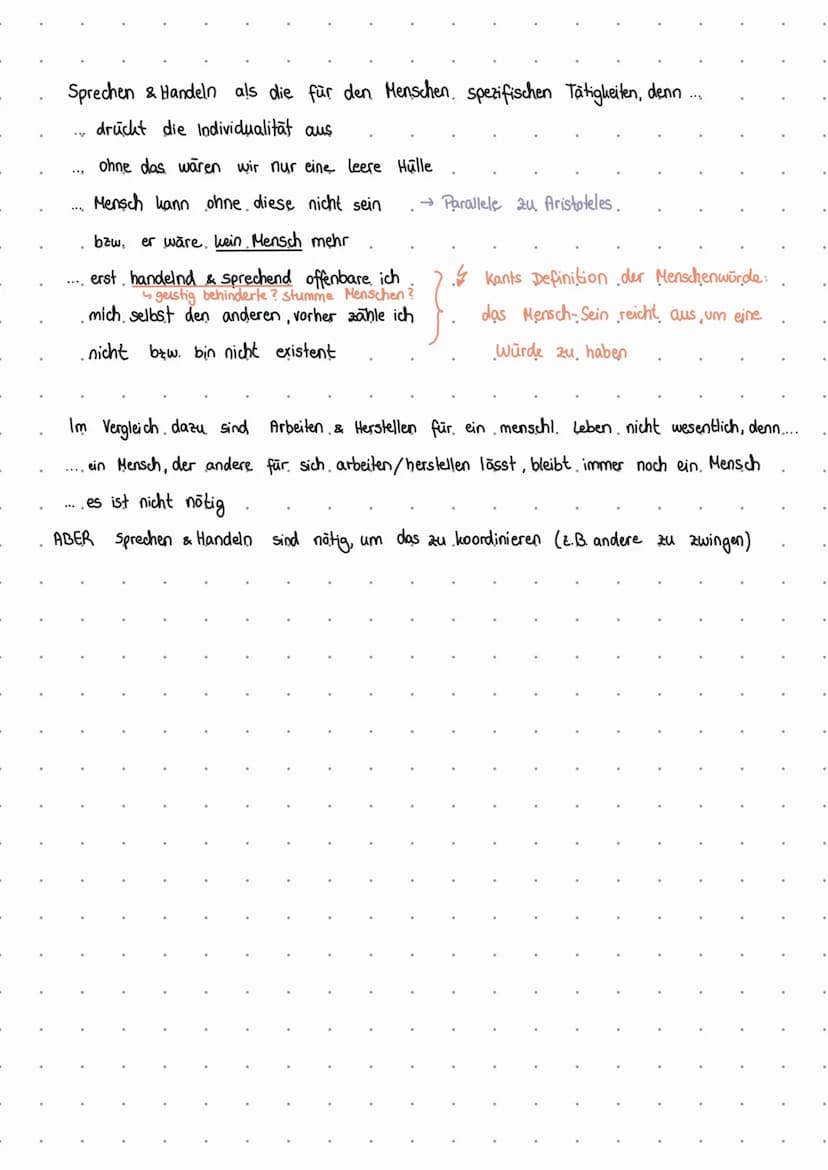 Sprechen & Handeln als die für den Menschen spezifischen Tätigkeiten, denn ...
... drückt die Individualität aus
... ohne das wären wir nur eine leere Hülle
... Mensch kann ohne diese nicht sein → Parallele zu Aristoteles
bzw. er wäre kein Mensch mehr
... erst handelnd & sprechend offenbare ich
↳ geistig behinderte? stumme Menschen?
mich selbst den anderen, vorher zähle ich
nicht bzw. bin nicht existent
Kants Definition der Menschenwürde:
das Mensch-Sein reicht aus, um eine
Würde zu haben
Im Vergleich dazu sind Arbeiten & Herstellen für ein menschl. Leben nicht wesentlich, denn ...
... ein Mensch, der andere für sich arbeiten/herstellen lässt, bleibt immer noch ein Mensch
... es ist nicht nötig
ABER Sprechen & Handeln sind nötig, um das zu koordinieren (z.B. andere zu zwingen)